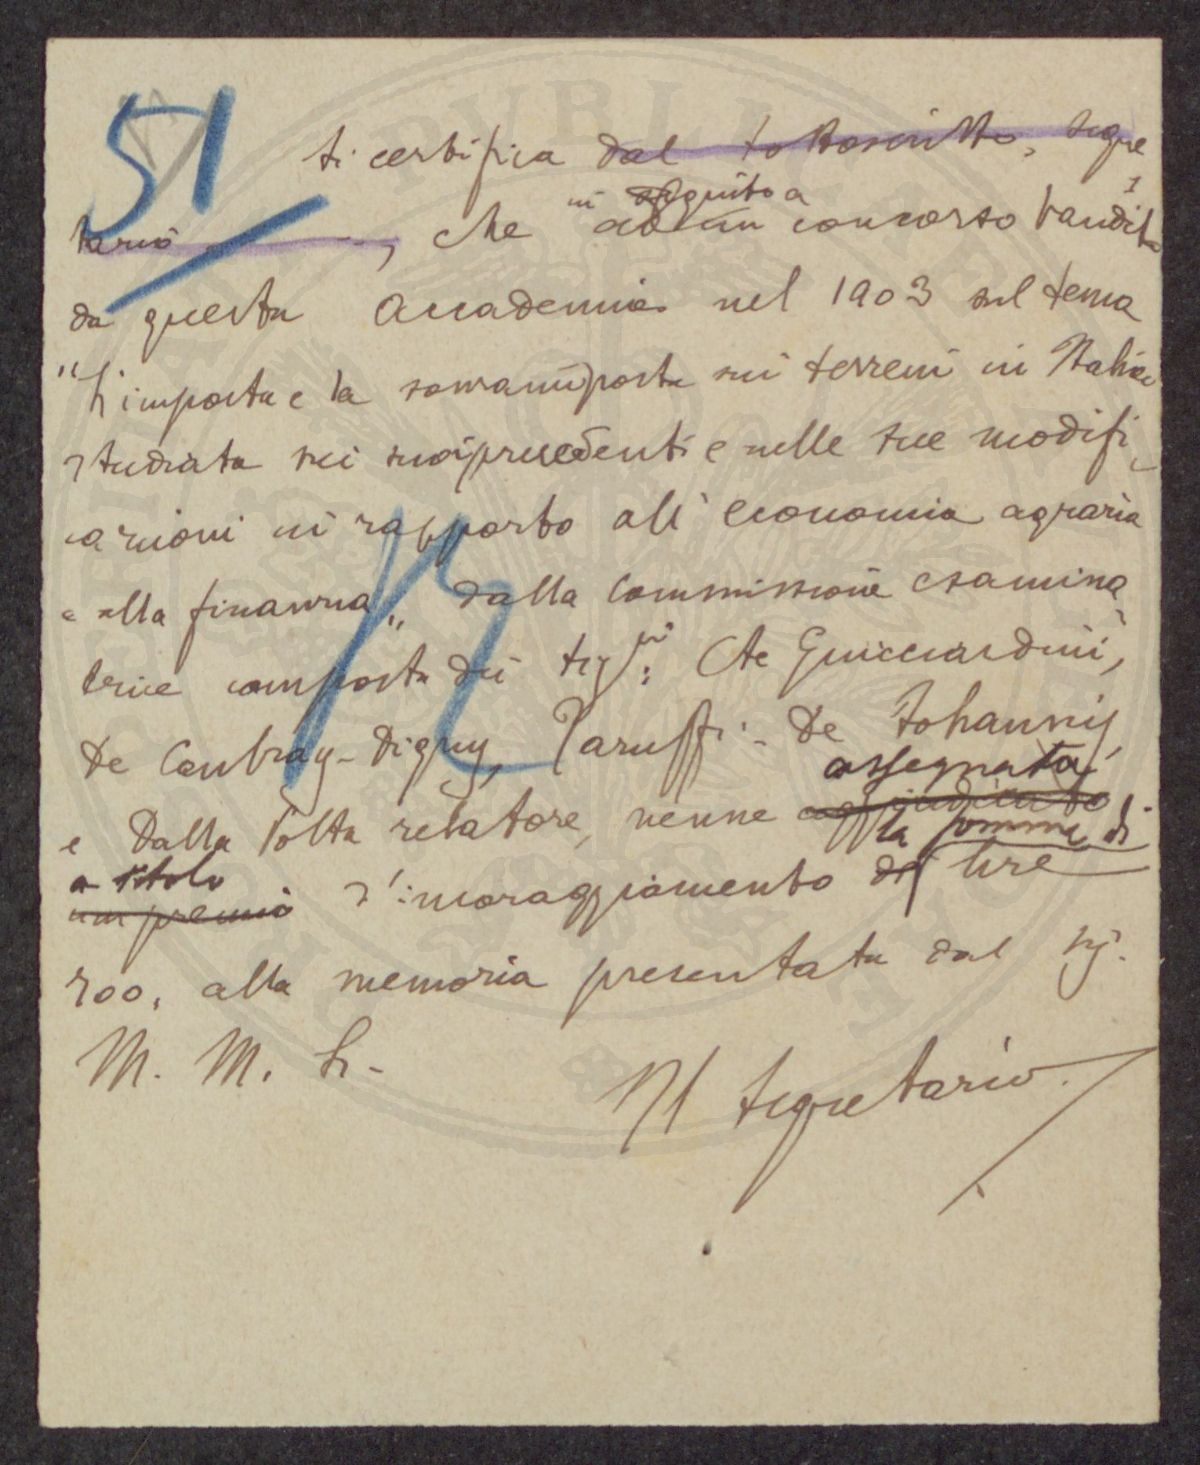 51
Si certifica dal sottoscritto, segre
tario, che in seguito a ad un concorso bandito
da questa Accademia nel 1903 sul tema
"L'imposta e la sovraimposta sui terreni in Italia
studiata nei suoi precedenti e nelle sue modifi
cazioni in rapporto all'economia agraria
e alla finanza" dalla Commissione esamina
trice composta dei sig.ri: Cte Guicciardini,
De Cambray-Digny, Paruffi - De Johannis,
e Dalla Volta relatore, venne aggiudicato assegnata la somma di
un premio a titolo d'incoraggiamento di lire
700, alla memoria presentata dal sig.
M. M. L.-
Il Segretario.